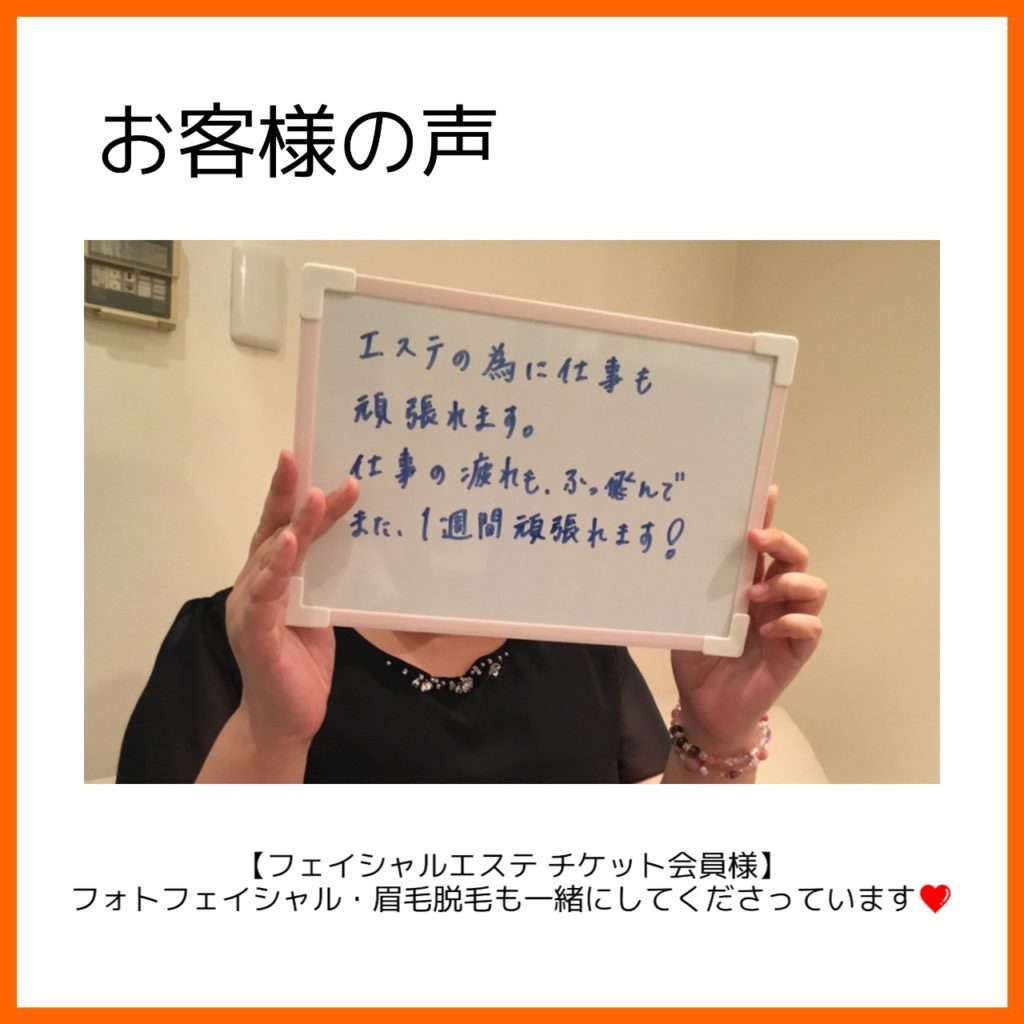 お客様の声
エステの為に仕事も
頑張れます。
仕事の疲れも、ぶっ飛んで
また、1週間頑張れます!
【フェイシャルエステ チケット会員様】
フォトフェイシャル・眉毛脱毛も一緒にしてくださっています❤